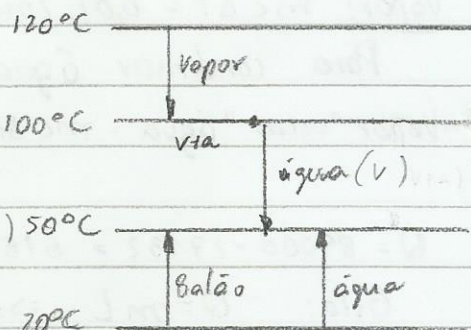 120°C
vapor
100°C
v→a
água (v)
) 50°C
balão
água
20°C